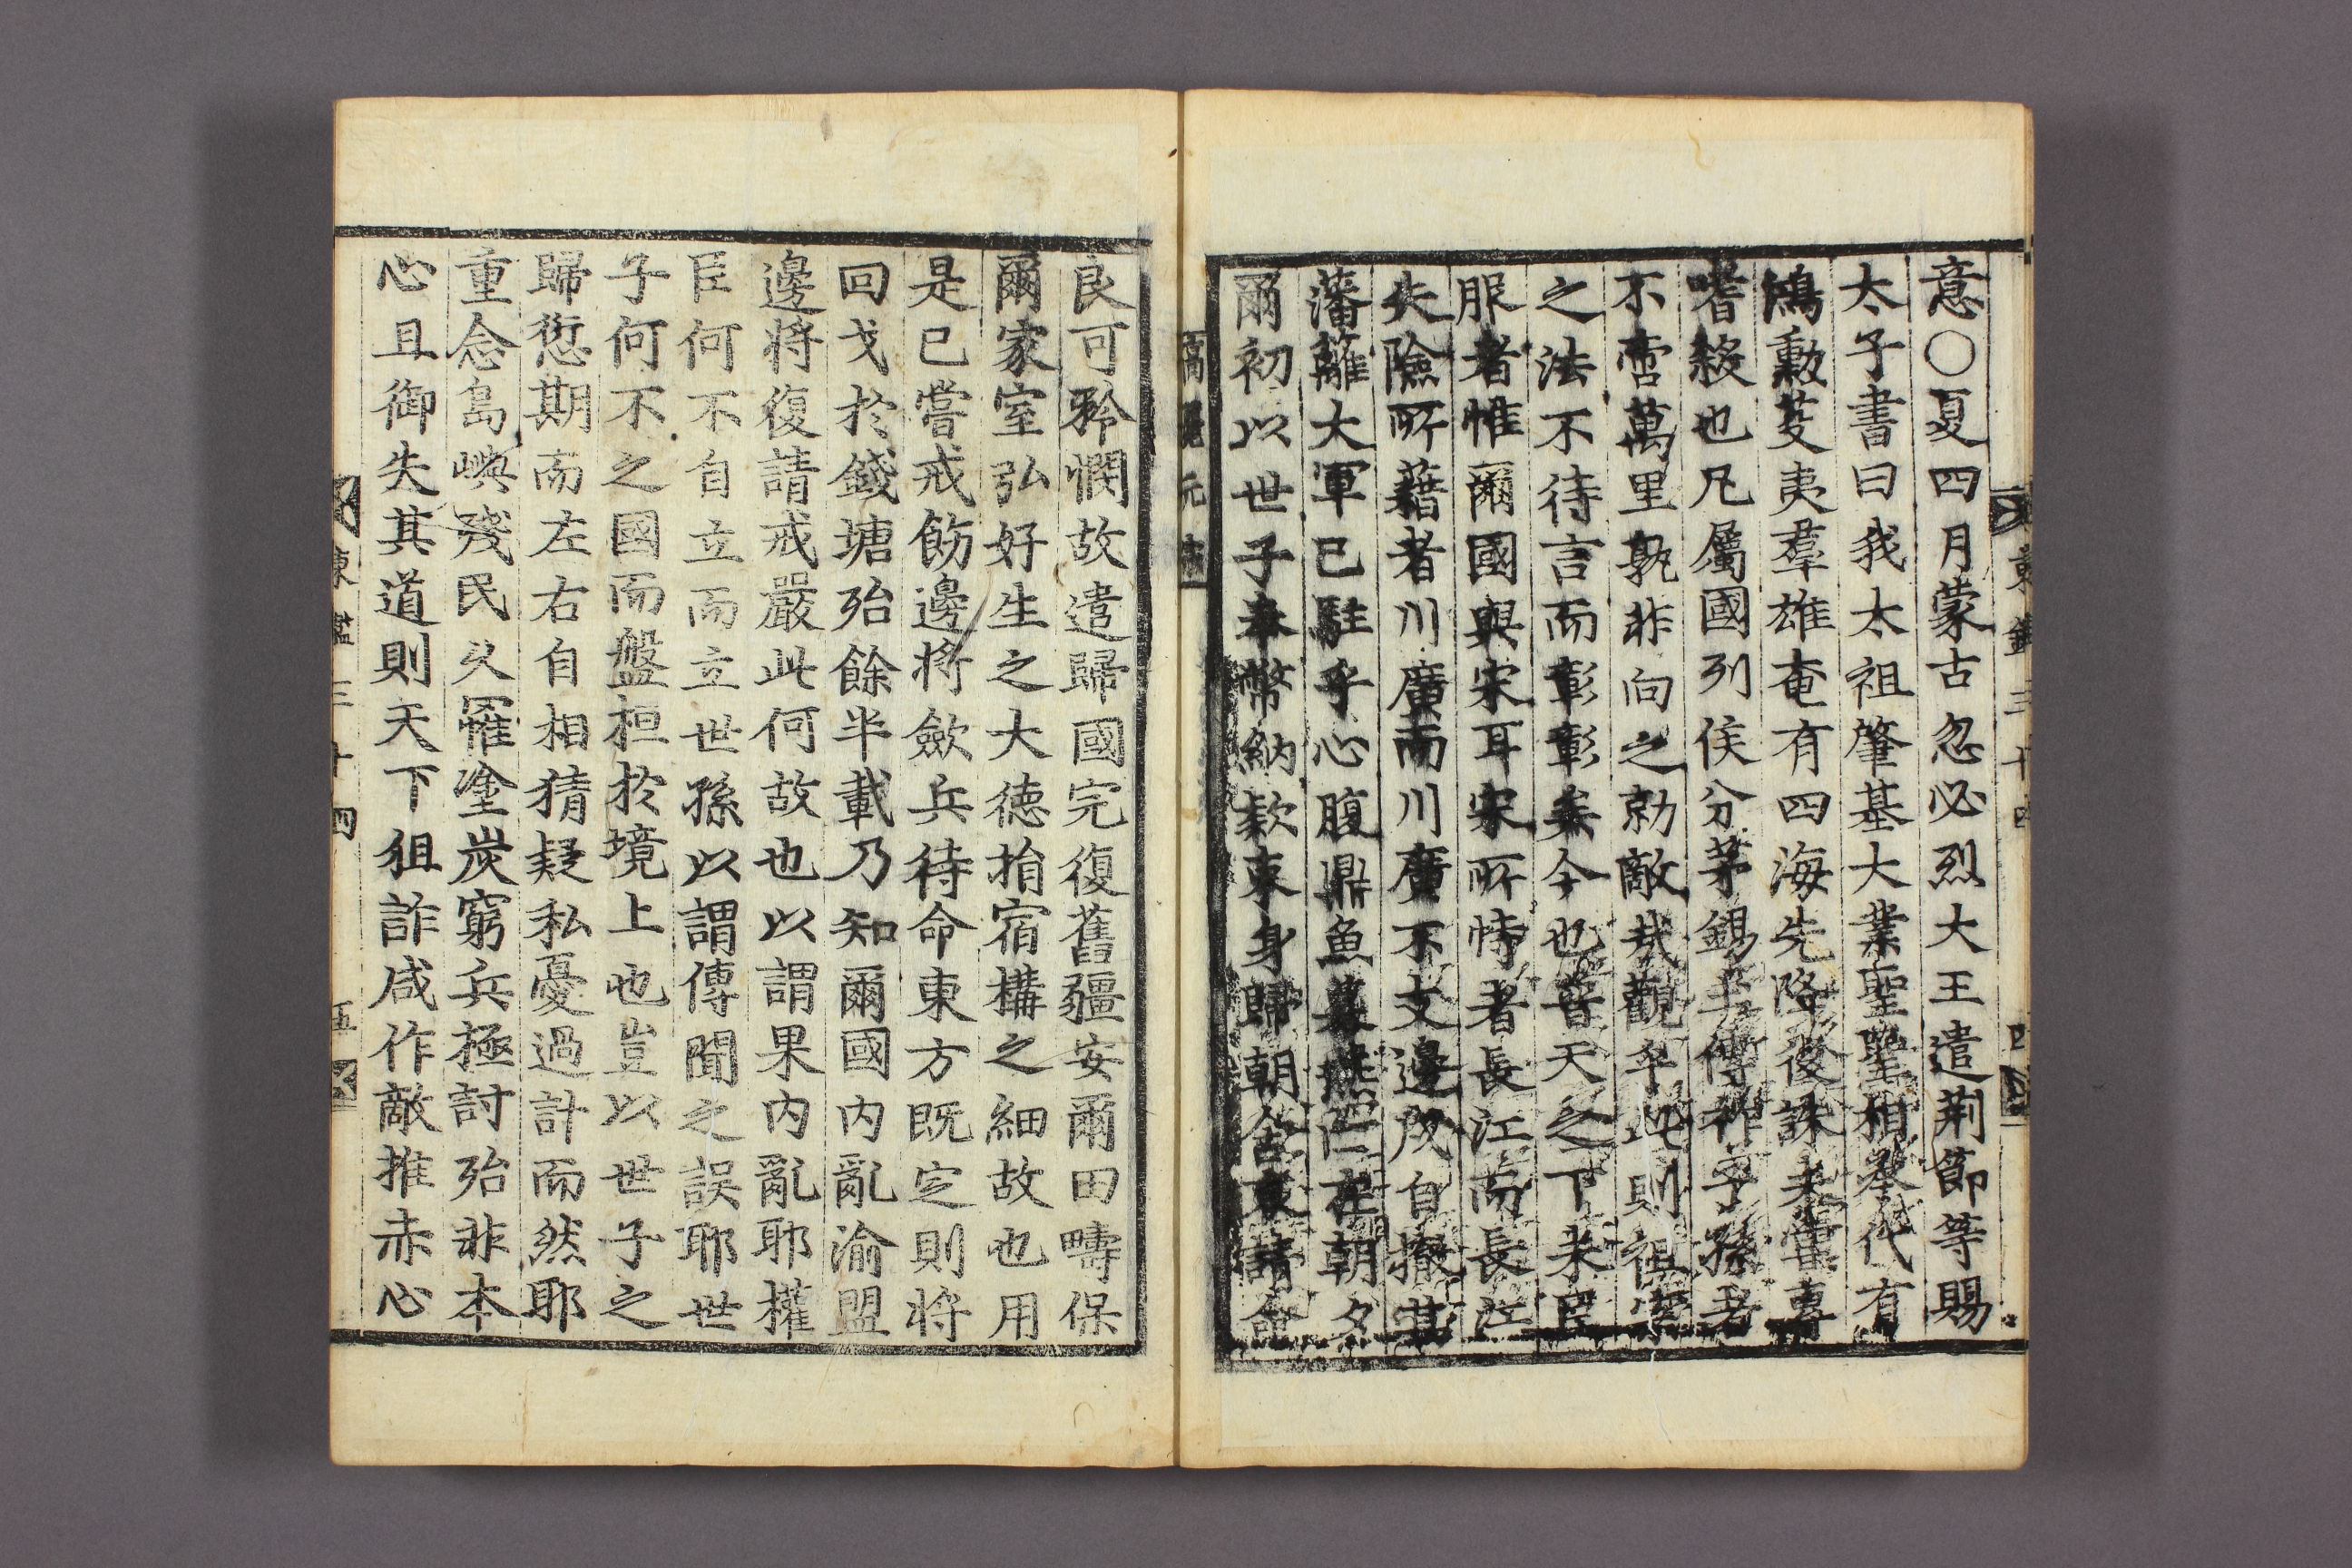 意○夏四月蒙古忽必烈大王遣荆節等賜
太子書曰我太祖肇基大業聖聖相承代有
鴻勳芟夷羣雄奄有四海先降後誅未嘗專
嗜殺也凡屬國列侯分茅錫土傳祚子孫者
不啻萬里孰非向之勍敵哉觀乎此則祖宗
之法不待言而彰彰矣今也普天之下未臣
服者惟爾國與宋耳宋所恃者長江而長江
失險所藉者川廣而川廣不支邊戍自撤其
藩籬大軍已駐乎心腹鼎魚幕燕亡在朝夕
爾初以世子奉幣納款束身歸朝含哀請命
良可矜憫故遣歸國完復舊疆安爾田疇保
爾家室弘好生之大德捐宿構之細故也用
是已嘗戒飭邊將斂兵待命東方旣定則將
回戈於錢塘殆餘半載乃知爾國內亂渝盟
邊將復請戒嚴此何故也以謂果內亂耶權
臣何不自立而立世孫以謂傳聞之誤耶世
子何不之國而盤桓於境上也豈以世子之
歸愆期而左右自相猜疑私憂過計而然耶
重念島嶼殘民久罹塗炭窮兵極討殆非本
心且御失其道則天下狙詐咸作敵推赤心
東鑑三十四 四
高麗元宗
東鑑三十四 五